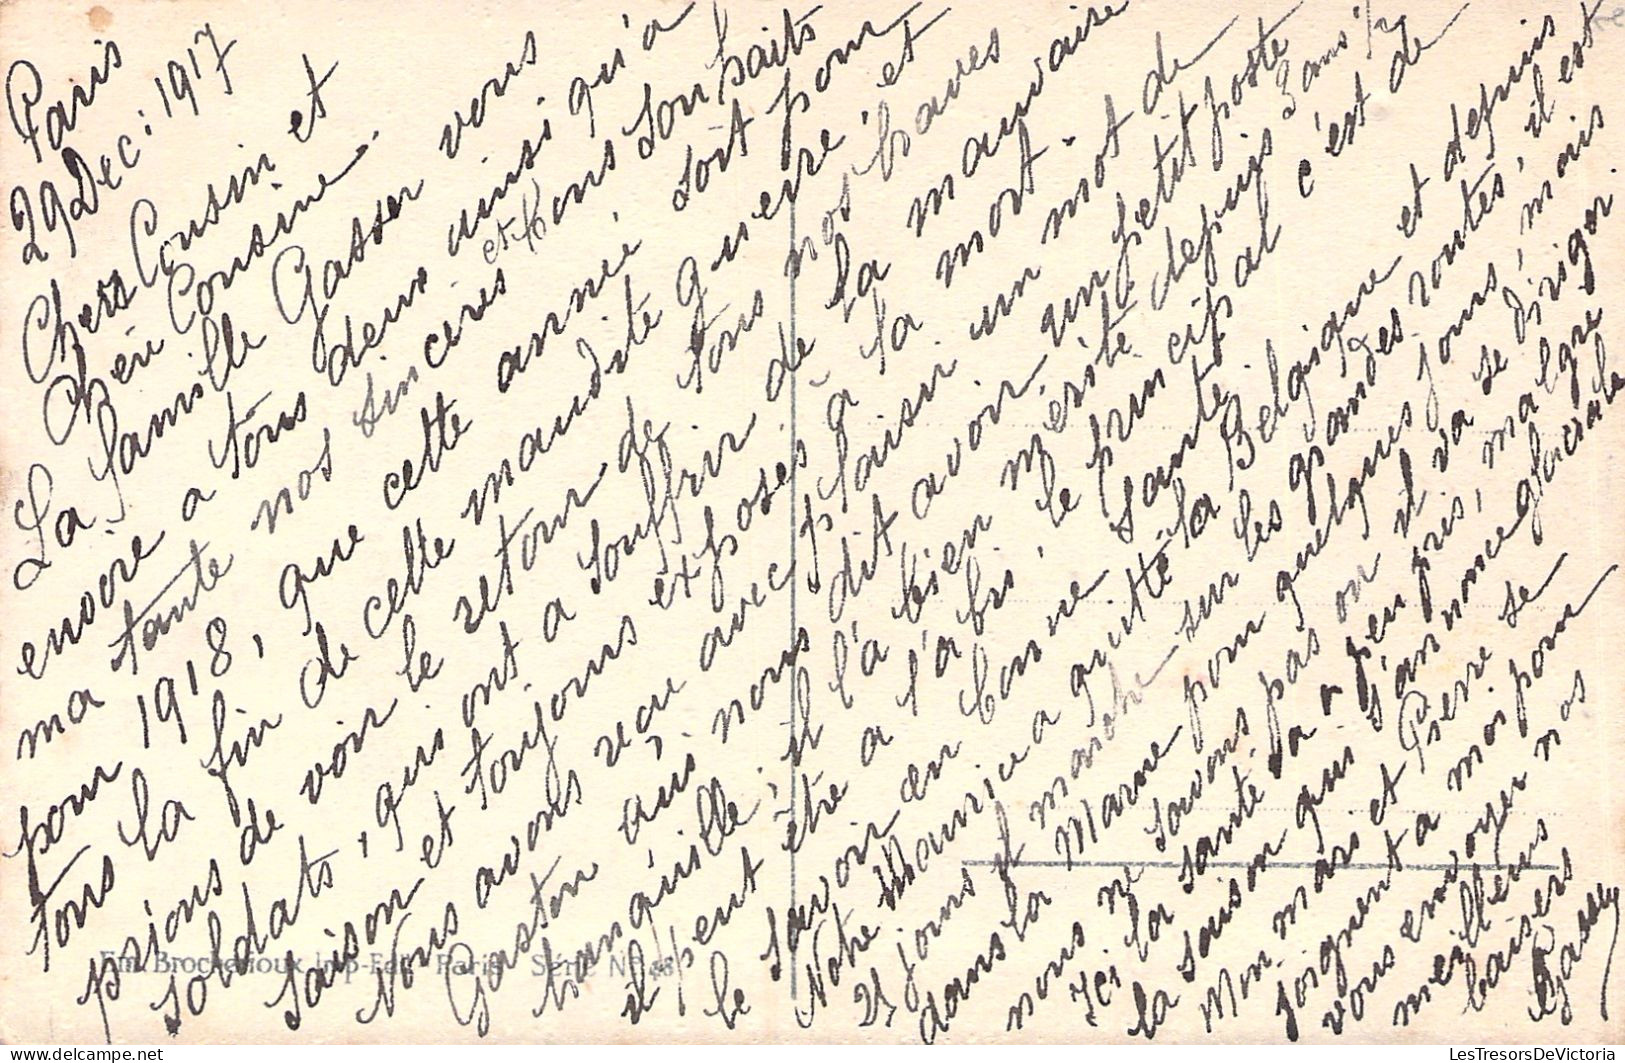 Paris
29 Dec: 1917
Chers Cousin et
Chère Cousine.
La famille Gasser vous
envore a tous deux ainsi qu'a
ma tante nos sincères et bons souhaits
pour 1918, que cette année, soit pour
tous la fin de cette maudite guerre, et
prions de voir le retour de tous nos braves
soldats, qui ont a souffrir de la mauvaise
saison et toujours exposés à la mort.
Nous avons reçu avec plaisir un mot de
Gaston qui nous dit avoir un petit poste
tranquille; il l'a bien mérité depuis 3 ans 1/2
il peut être a l'abri, le principal c'est de
le savoir en bonne santé.
Notre Maurice a quitté la Belgique et depuis
21 jours il marche sur les grandes routes, il est
dans la Marne pour quelques jours, mais
nous ne savons pas ou il va se diriger.
Ici la santé va a peu près, malgré
la saison qui s'annonce glaciale
Mon mari et Pierre se
joignent a moi pour
vous envoyer nos
meilleurs
baisers
Gasser
Em. Brocherioux, Imp-Edit. Paris Série N° 48
LesTresorsDeVictoria
delcampe.net